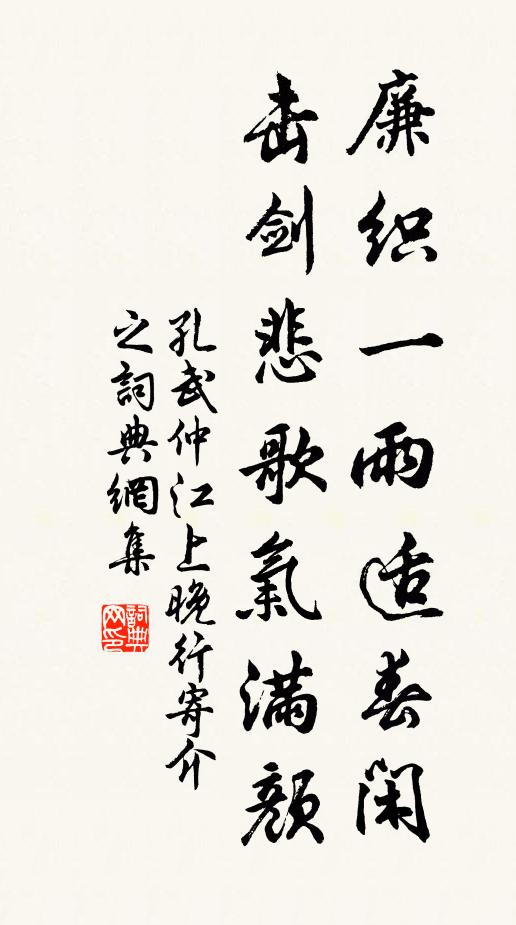 廉织一雨适春闲
击剑悲歌氣满颜
孔武仲江上晚行寄介
之詞典網集
詞典网印